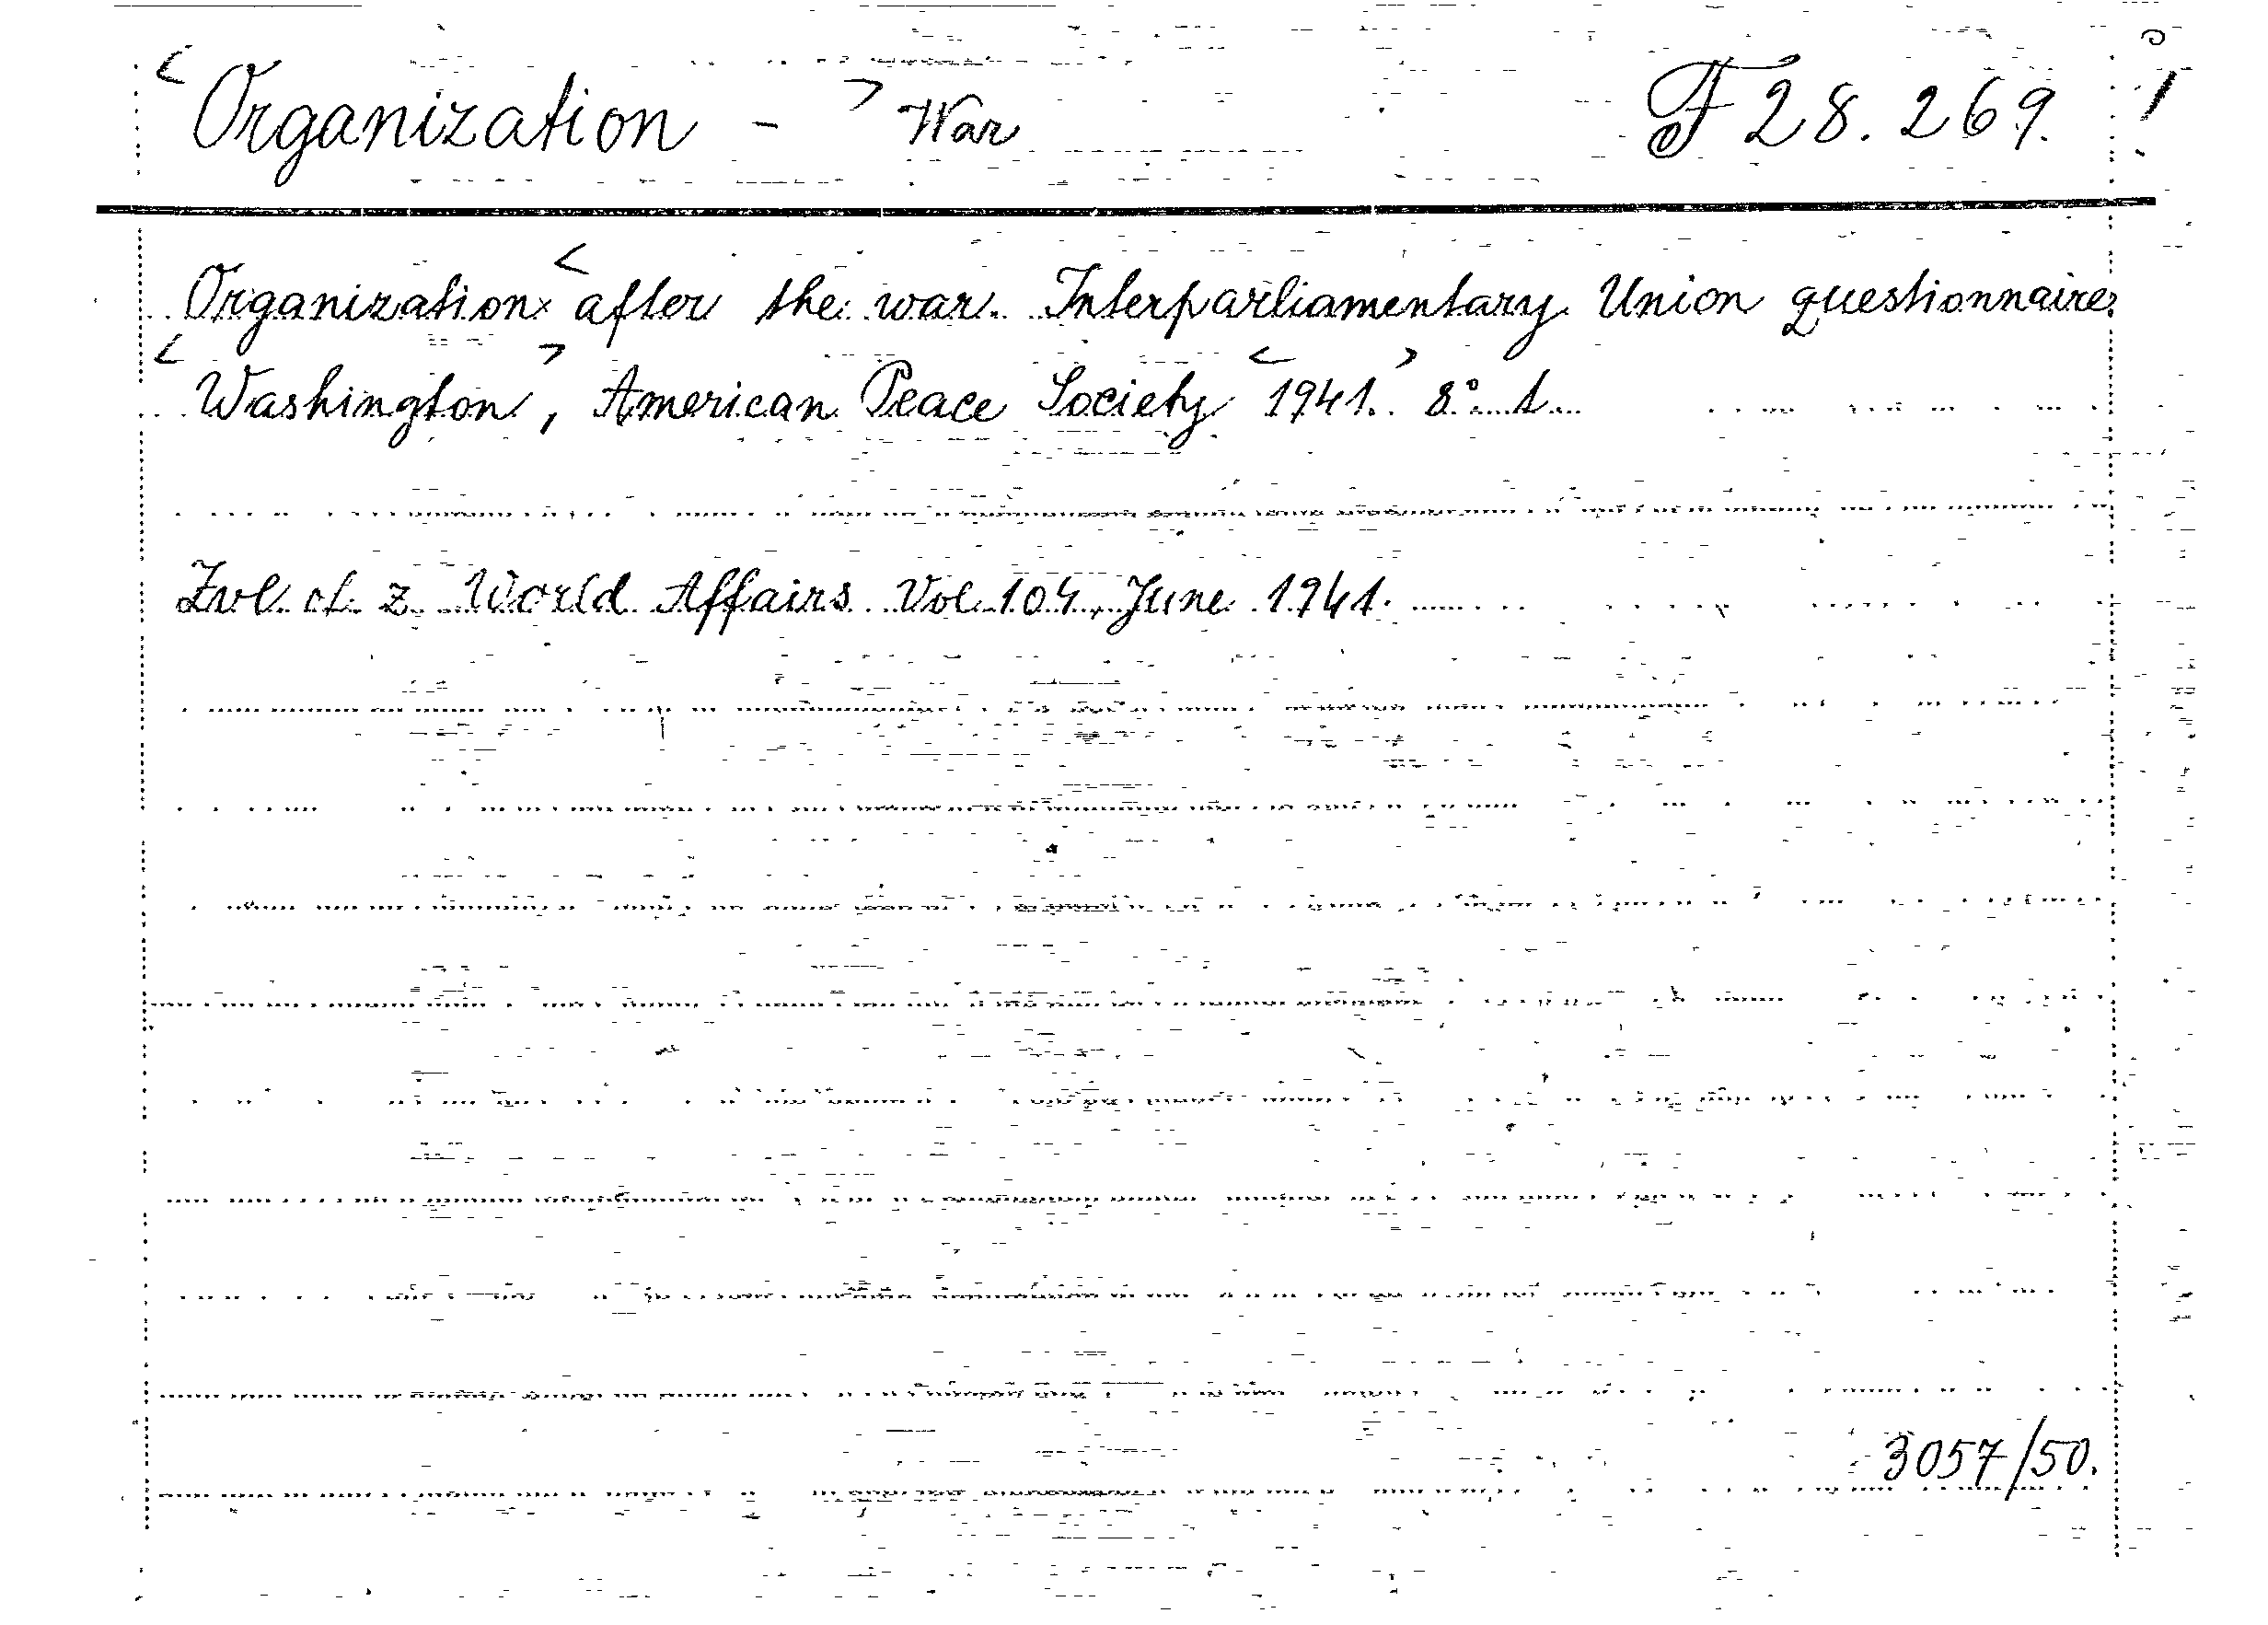 <Organization - > War F 28.269.
Organization <after the war. Interparliamentary Union questionnaire.
<Washington>, American Peace Society <1941.> 8° 1
Zvl. ot. z. World Affairs Vol. 104, June 1941.
3057/50.